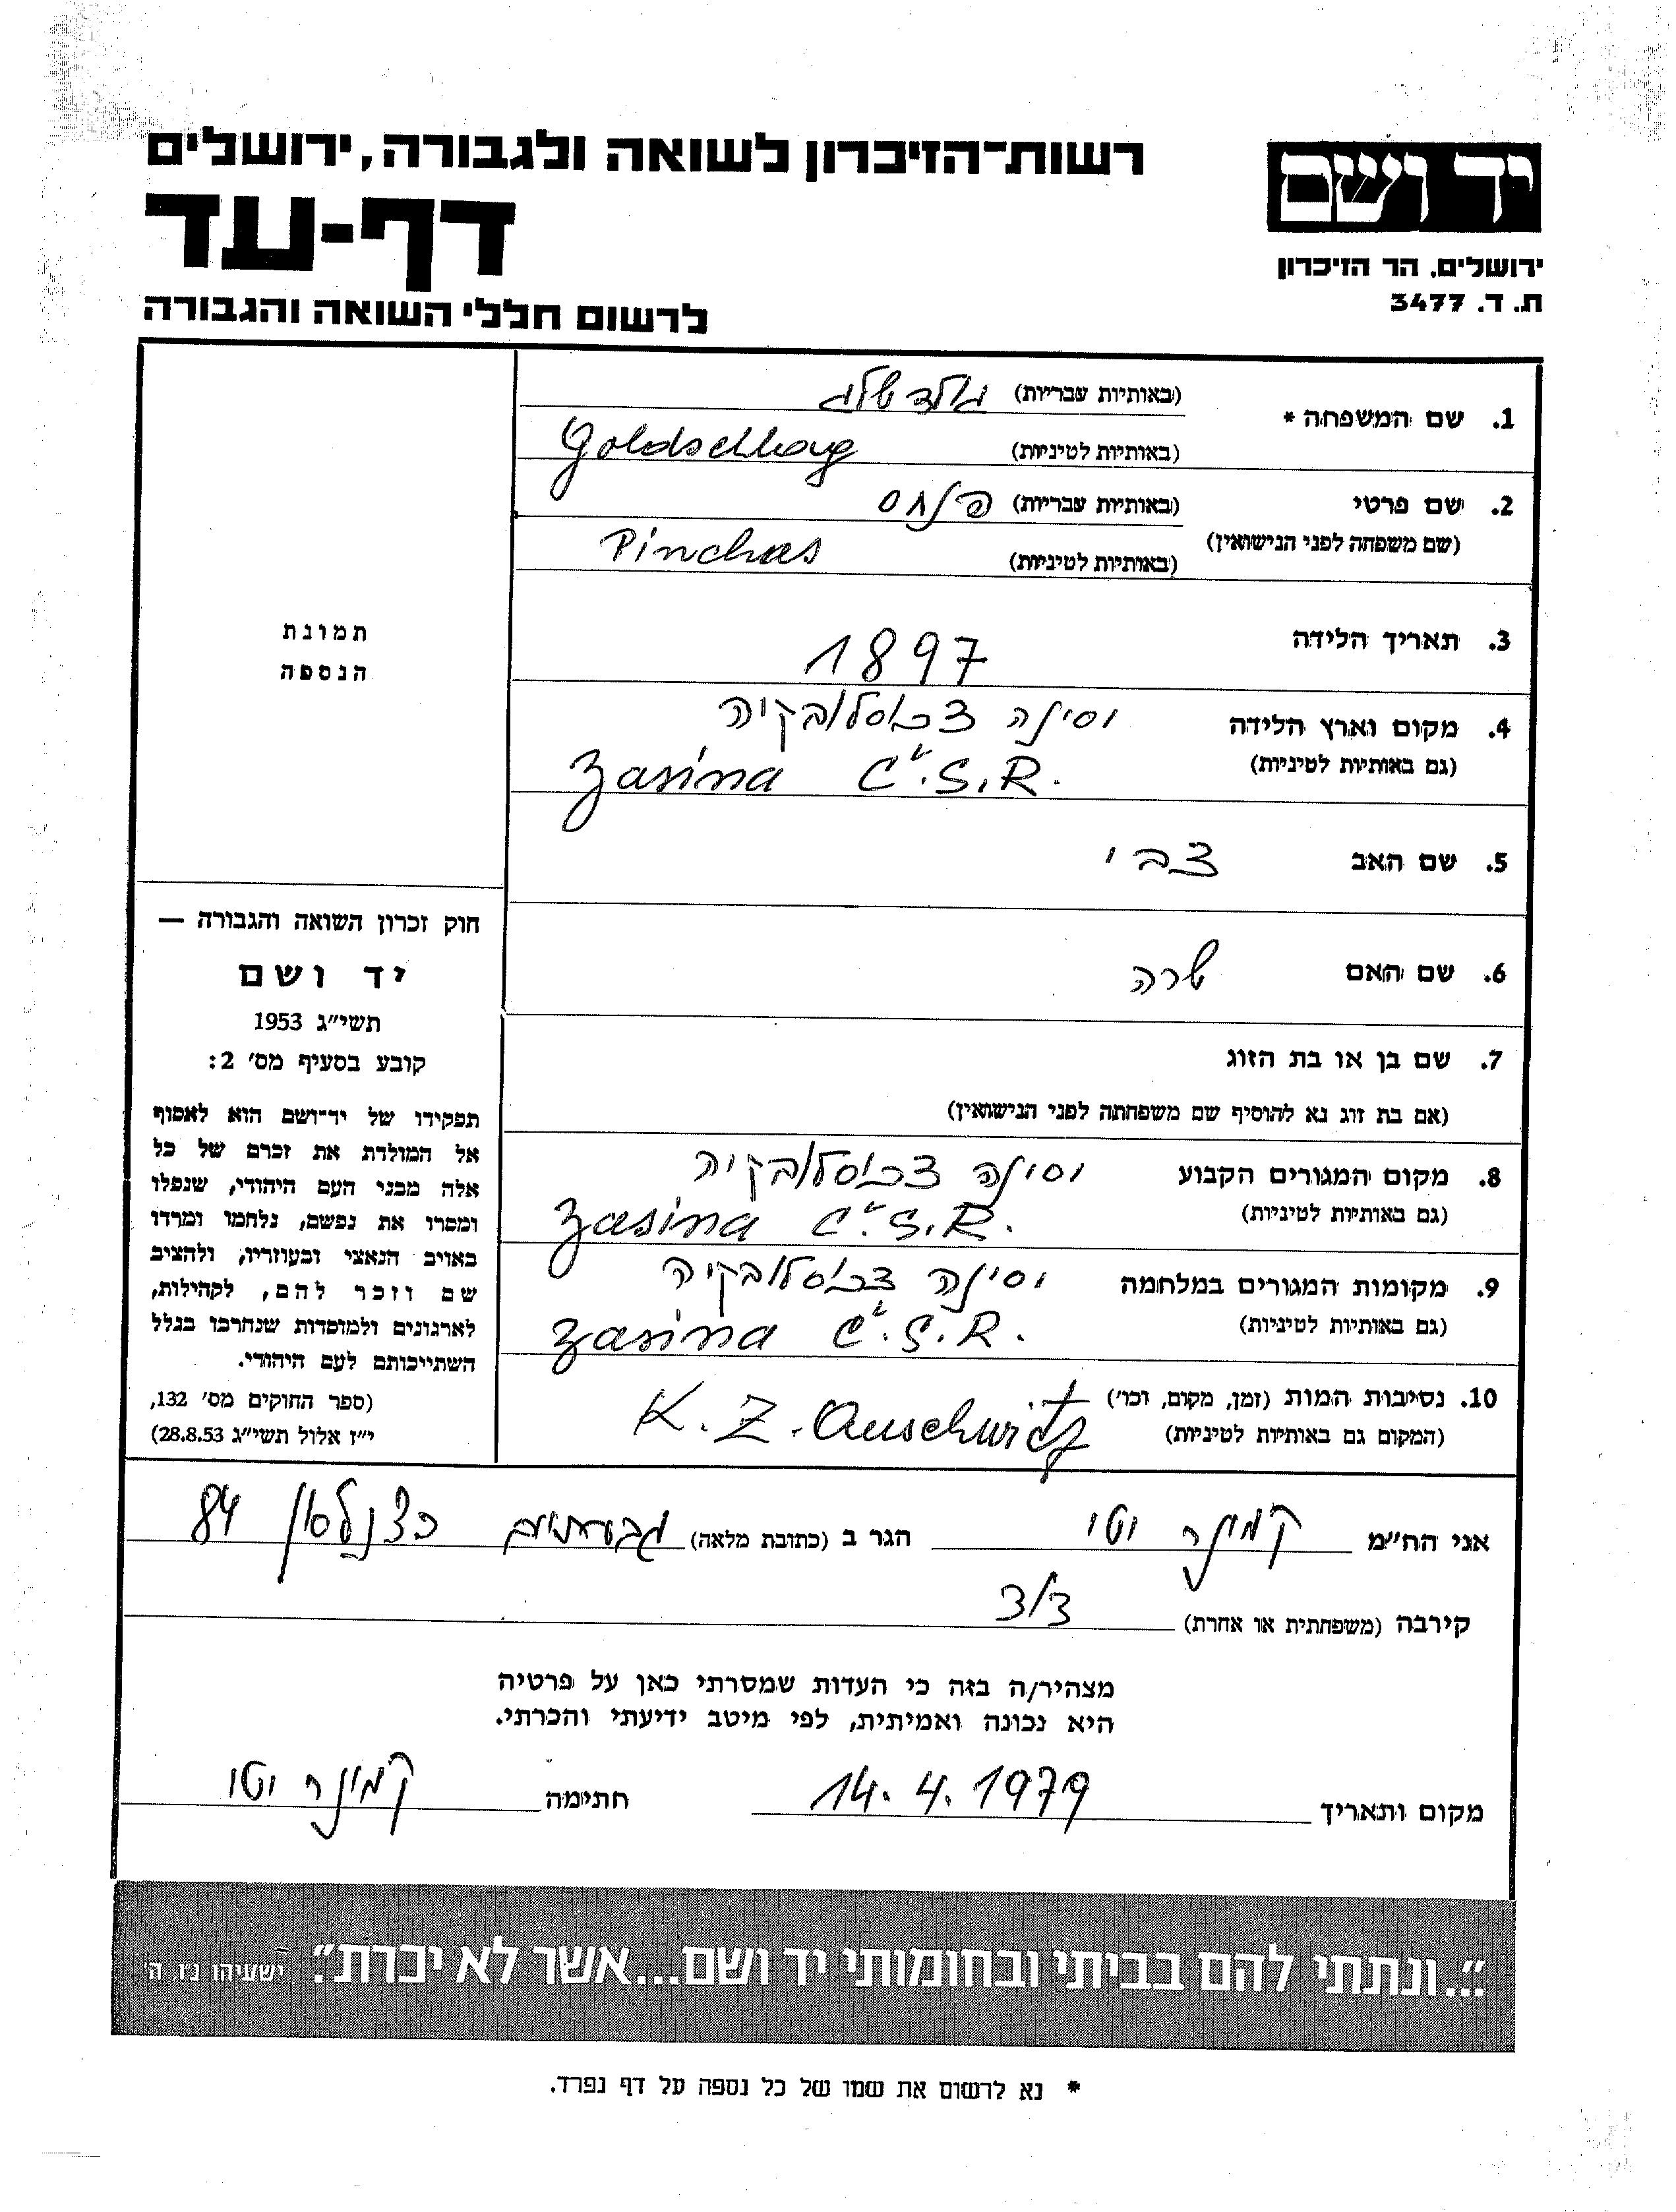 רשות-הזיכרון לשואה ולגבורה, ירושלים
דף-עד
לרשום חללי השואה והגבורה
יד ושם
ירושלים, הר הזיכרון
ת.ד. 3477
1. שם המשפחה *
(באותיות עבריות)
(באותיות לטיניות) Goldschlag
2. שם פרטי (באותיות עבריות) פנחס
(שם משפחה לפני הנישואין)
(באותיות לטיניות) Pinchas
3. תאריך הלידה 1897
4. מקום וארץ הלידה וסינה צכוסלובקיה
(גם באותיות לטיניות) Zasina Č.S.R.
5. שם האב צבי
6. שם האם שרה
7. שם בן או בת הזוג
(אם בת זוג נא להוסיף שם משפחתה לפני הנישואין)
8. מקום המגורים הקבוע וסינה צכוסלובקיה
(גם באותיות לטיניות) Zasina Č.S.R.
9. מקומות המגורים במלחמה וסינה צכוסלובקיה
(גם באותיות לטיניות) Zasina Č.S.R.
10. נסיבות המות (זמן, מקום, וכו') K.Z. Auschwitz
(המקום גם באותיות לטיניות)
תמונת
הנספה
חוק זכרון השואה והגבורה —
יד ושם
תשי״ג 1953
קובע בסעיף מס׳ 2:
תפקידו של יד-ושם הוא לאסוף
אל המולדת את זכרם של כל
אלה מבני העם היהודי, שנפלו
ומסרו את נפשם, נלחמו ומרדו
באויב הנאצי ובעוזריו, ולהציב
שם וזכר להם, לקהילות,
לארגונים ולמוסדות שנחרבו בגלל
השתייכותם לעם היהודי.
(ספר החוקים מס׳ 132,
י״ז אלול תשי״ג 28.8.53)
אני הח״מ קמינר וטו הגר ב (כתובת מלאה) גבעתיים כצנלסון 84
קירבה (משפחתית או אחרת)
מצהיר/ה בזה כי העדות שמסרתי כאן על פרטיה
היא נכונה ואמיתית, לפי מיטב ידיעתי והכרתי.
מקום ותאריך 14.4.1979 חתימה קמינר וטו
״...ונתתי להם בביתי ובחומותי יד ושם...אשר לא יכרת״. ישעיהו נ״ו, ה׳
* נא לרשום את שמו של כל נספה על דף נפרד.